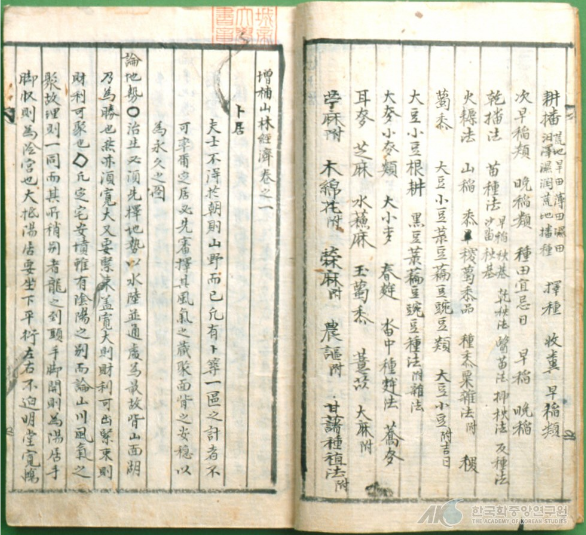 耕播 荒地 旱田 薄田 濕田 沮澤 漏洞 荒地播種 擇種 收糞 早稻類
次早稻類 晩稻類 種田宜忌日 旱稻 晩稻
乾播法 苗種法 早稻秧基 乾秧法 附苗法 抑秧法 反種法
火耨法 山稻 黍 稷蜀黍品 種黍粟雜法附 稷
蜀黍 大豆小豆菉豆藊豆豌豆類 大豆小豆附吉日
大豆小豆根耕 黑豆菉藊豆豌豆種法附雜法
大麥小麥類 大小麥 春麰 畓中種麰法 蕎麥
耳麥 芝麻 水蘇麻 玉蜀黍 薏苡 大麻附
苧麻附 木綿花附 檾麻附 農謳附 甘藷種植法附
增補山林經濟卷之一
卜居
夫士不得於朝則山野而已凡有卜築一區之計者不
可率爾迎居必先審擇其風氣之藏聚面背之安穩以
為永久之圖
論地勢〇治生必須先擇地勢以水陸並通處為最故背山面湖
乃為勝也然亦須寬大又要緊束盖寬大則財利可出緊束則
財利可聚也〇凡定宅安墳雖有陰陽之別而論山川風氣之
聚故理則一同而其所稍別者龍之到頭手脚開則為陽居手
脚收則為陰宮也大抵陽居要坐下平衍左右不迫明堂寬暢
한국학중앙연구원
THE ACADEMY OF KOREAN STUDIES